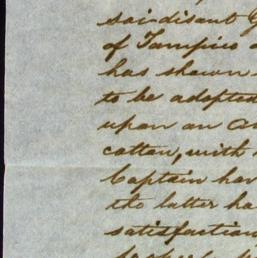 soi-disant G
of Tampico
has shown
to be adopted
upon an
cotton, with
Captain hav
the latter ha
satisfaction